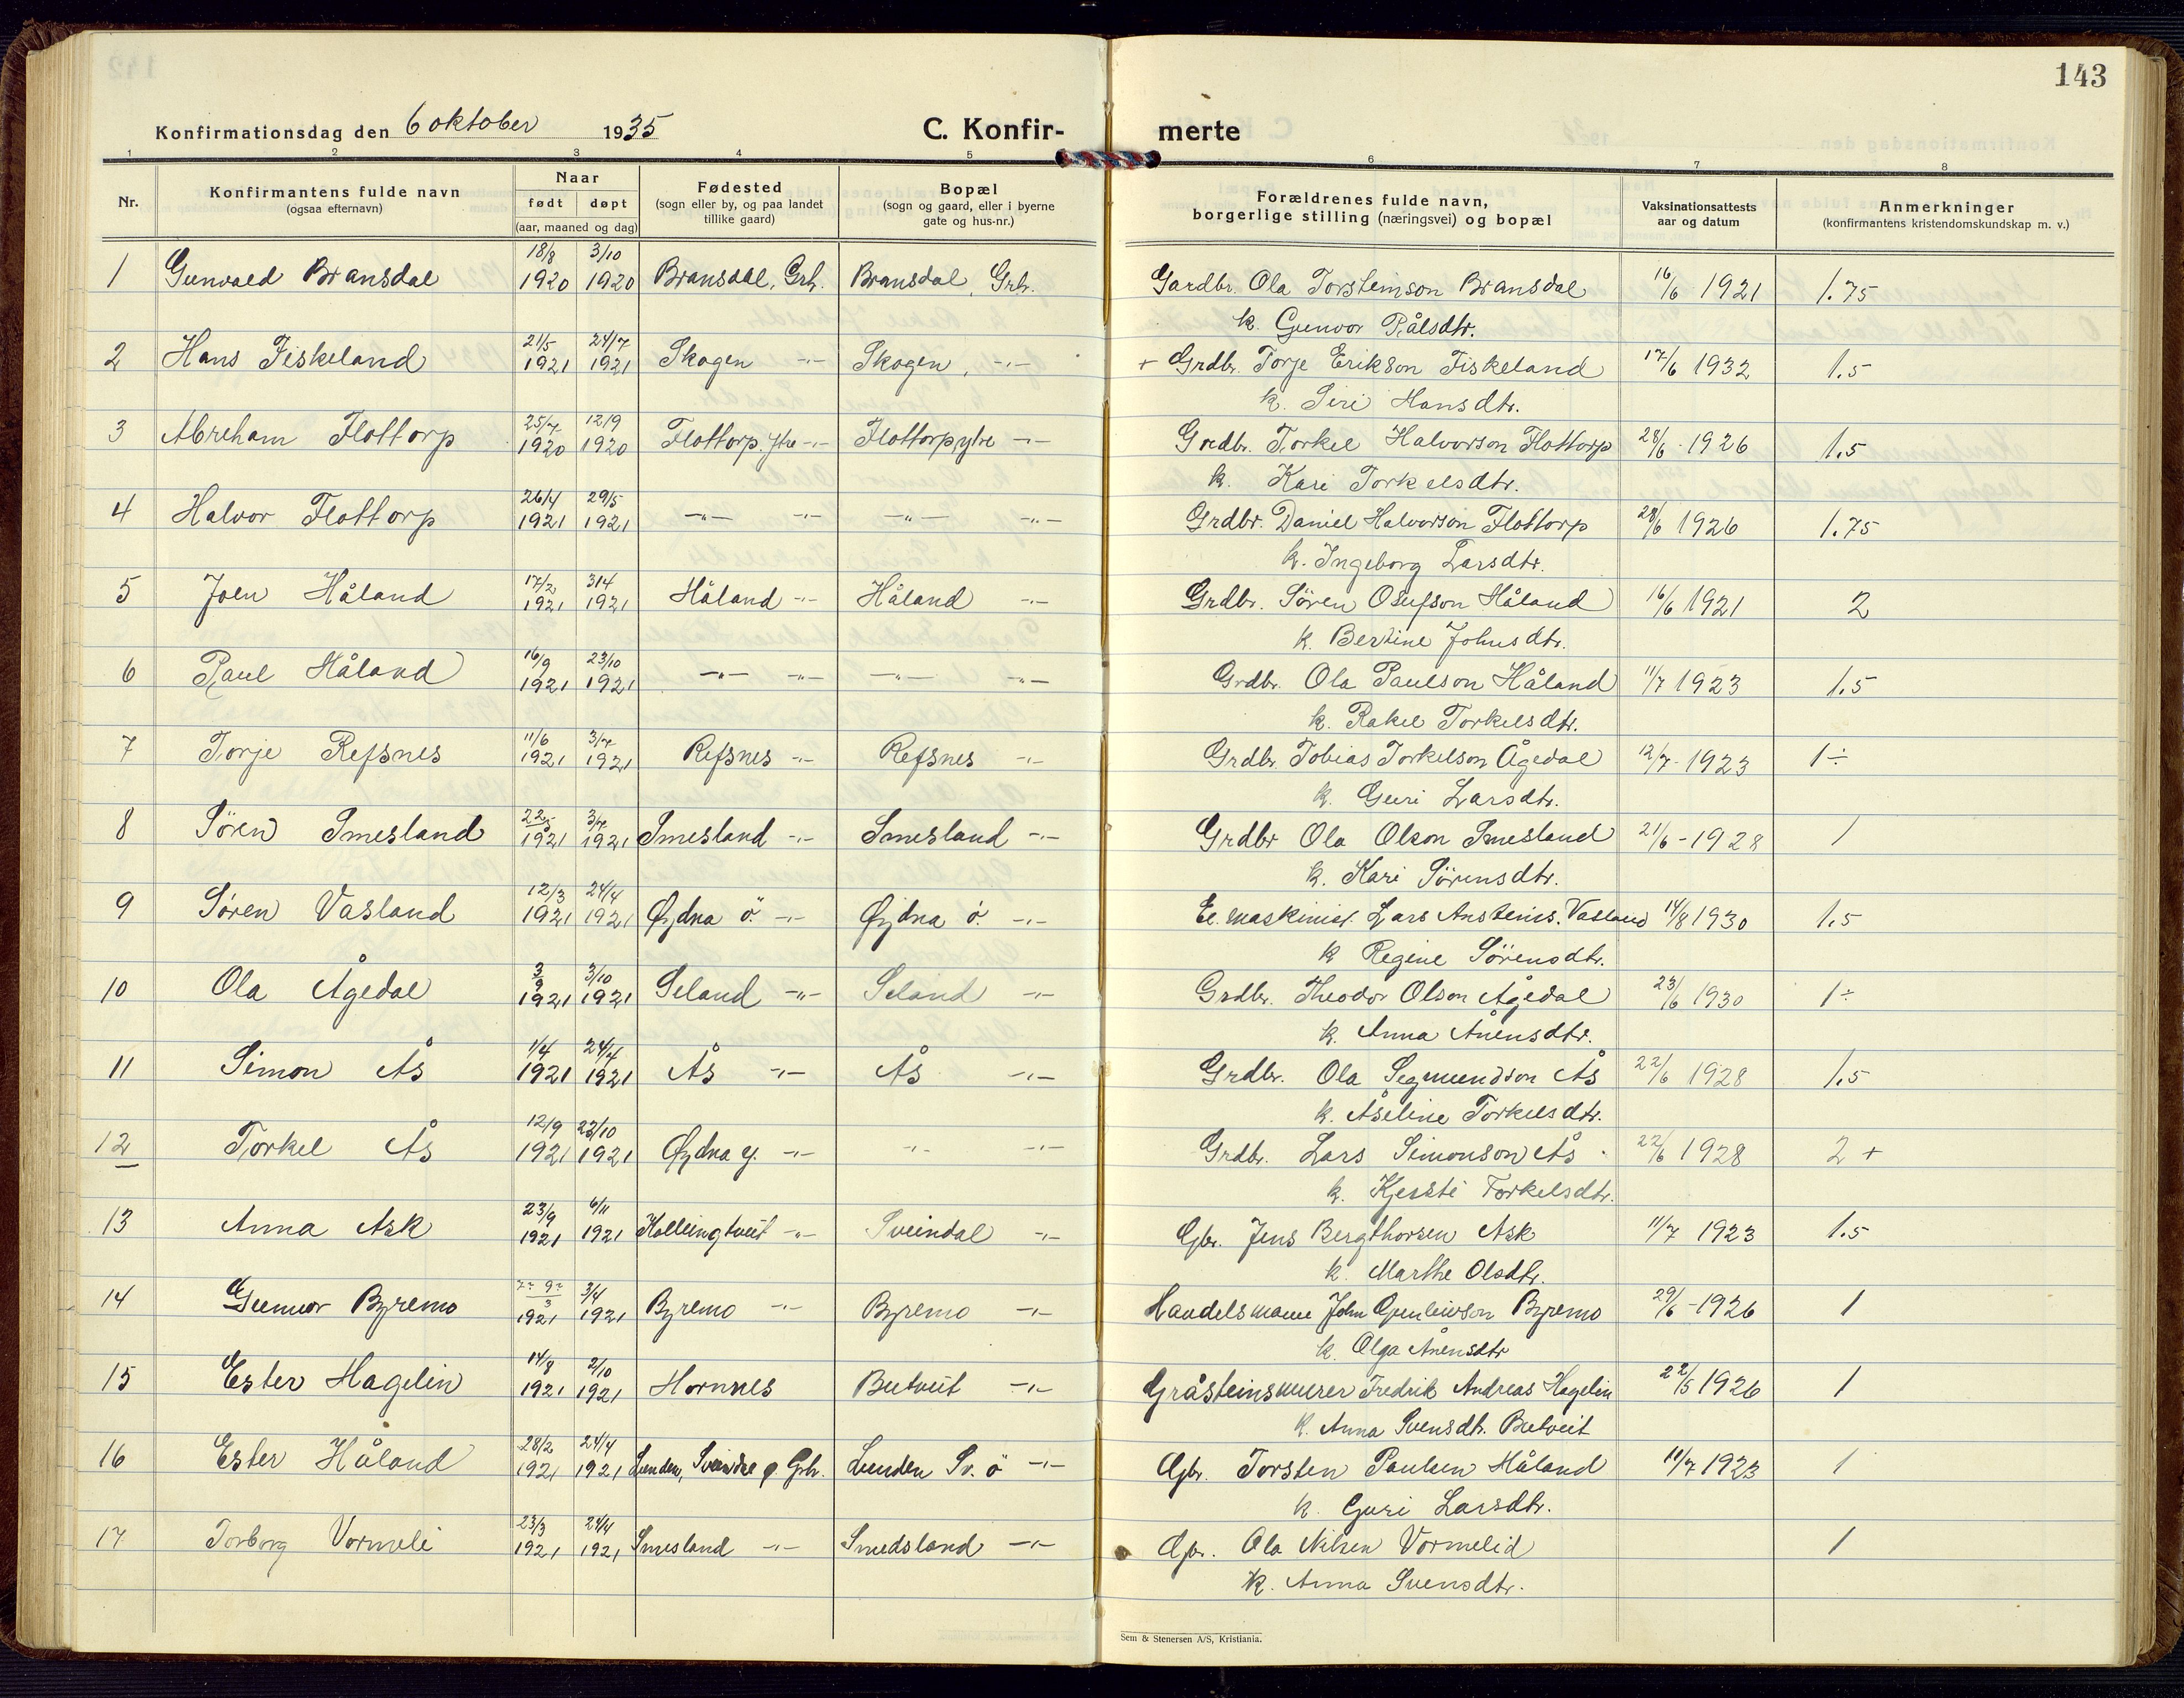 143
Konfirmationsdag den 6 oktober 1935 C. Konfirmerte
1 2 3 4 5 6 7 8
Nr. Konfirmantens fulde navn (ogsaa efternavn) Naar født døpt (aar, maaned og dag) Fødested (sogn eller by, og paa landet tillike gaard) Bopæl (sogn og gaard, eller i byerne gate og hus-nr.) Forældrenes fulde navn, borgerlige stilling (næringsvei) og bopæl Vaksinationsattests aar og datum Anmerkninger (konfirmantens kristendomskundskap m. v.)
1 Gunvald Bransdal 18/8 1920 3/10 1920 Bransdal, Grh. Bransdal, Grh. Gardbr. Ola Torsteinson Bransdal 16/6 1921 1.75
k. Gunvor Pålsdtr.
2 Hans Fiskeland 21/5 1921 24/7 1921 Skogen -"- Skogen, -"- + Grdbr. Torje Erikson Fiskeland 17/6 1932 1.5
k. Siri Hansdtr.
3 Abreham Flottorp 25/7 1920 12/9 1920 Flottorp ytre -"- Flottorp ytre -"- Grdbr. Torkel Halvorson Flottorp 28/6 - 1926 1.5
k. Kari Torkelsdtr.
4 Halvor Flottorp 26/4 1921 29/5 1921 -"- -"- -"- -"- Grdbr. Daniel Halvorson Flottorp 28/6 1926 1.75
k. Ingeborg Larsdtr.
5 Joen Håland 17/2 1921 3/4 1921 Håland -"- Håland -"- Grdbr. Søren Osufson Håland 16/6 1921 2
k. Bertine Johnsdtr.
6 Paul Håland 16/9 1921 23/10 1921 -"- -"- -"- -"- Grdbr. Ola Paulson Håland 11/7 1923 1.5
k. Rakel Torkelsdtr.
7 Torje Refsnes 11/6 1921 3/7 1921 Refsnes -"- Refsnes -"- Grdbr. Tobias Torkelson Ågedal 12/7 - 1923 1÷
k. Guri Larsdtr.
8 Søren Smesland 1921 3/4 1921 Smesland -"- Smesland -"- Grdbr Ola Olson Smesland 21/6 - 1928 1
k. Kari Sørensdtr.
9 Søren Vasland 12/3 1921 24/4 1921 Øydna ö. -"- Øydna ö. -"- El. maskinist. Lars Ansteins. Vasland 14/8 1930 1.5
k Regine Sörensdtr.
10 Ola Ågedal 3/9 1921 3/10 1921 Seland -"- Seland -"- Grdbr. Theodor Olson Ågedal 23/6 1930 1÷
k. Anna Ånensdtr.
11 Simon Ås 1/4 1921 24/4 1921 Ås -"- Ås -"- Grdbr. Ola Segmundson Ås 22/6 1928 1.5
k. Åseline Torkelsdtr.
12 Torkel Ås 12/9 1921 23/10 1921 Øydna y. -"- -"- -"- Grdbr. Lars Simonson Ås 22/6 1928 2 +
k. Kjersti Torkelsdtr.
13 Anna Ask 23/9 1921 6/11 1921 Kolleingtveit -"- Sveindal -"- Gbr. Jens Bergthorsen Ask 11/7 1923 1.5
k. Marthe Olsdtr.
14 Gunvor Byremo 1921 3/4 1921 Byremo -"- Byremo -"- Handelsmann John Gunleivson Byremo 29/6 - 1926 1
k. Olga Ånensdtr
15 Ester Hagelin 14/8 1921 2/10 1921 Hornnes Butveit -"- Gråsteinsmurer Fredrik Andreas Hagelin 22/5 1926 1
k. Anna Svensdtr. Butveit
16 Ester Håland 28/2 1921 24/4 1921 Lunden, Grh. Lunden Sv. ö -"- Gbr. Torsten Paulsen Håland 11/7 1923 1
k. Guri Larsdtr.
17 Torborg Vormeli 23/3 1921 24/4 1921 Smesland -"- Smedsland -"- Gbr. Ola Nilsen Vormelid 1
k. Anna Svensdtr.
Sem & Stenersen A/S, Kristiania.